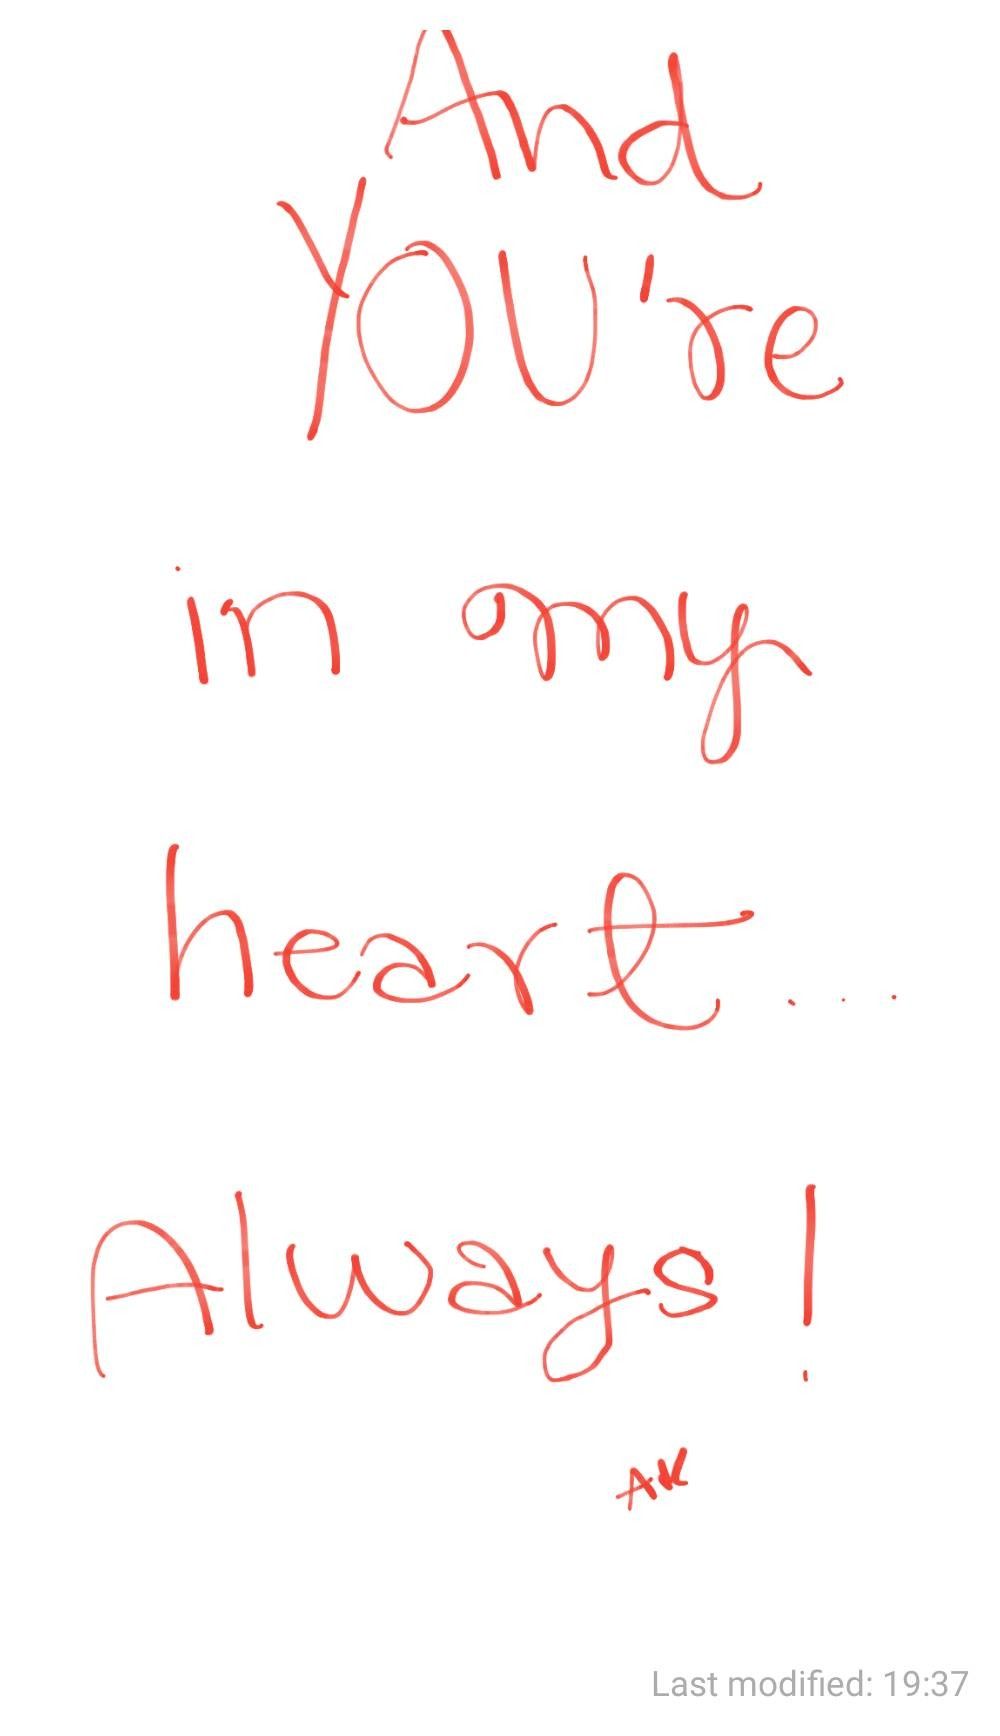 And
YOU're
in my
heart....
Always!
AK
Last modified: 19:37